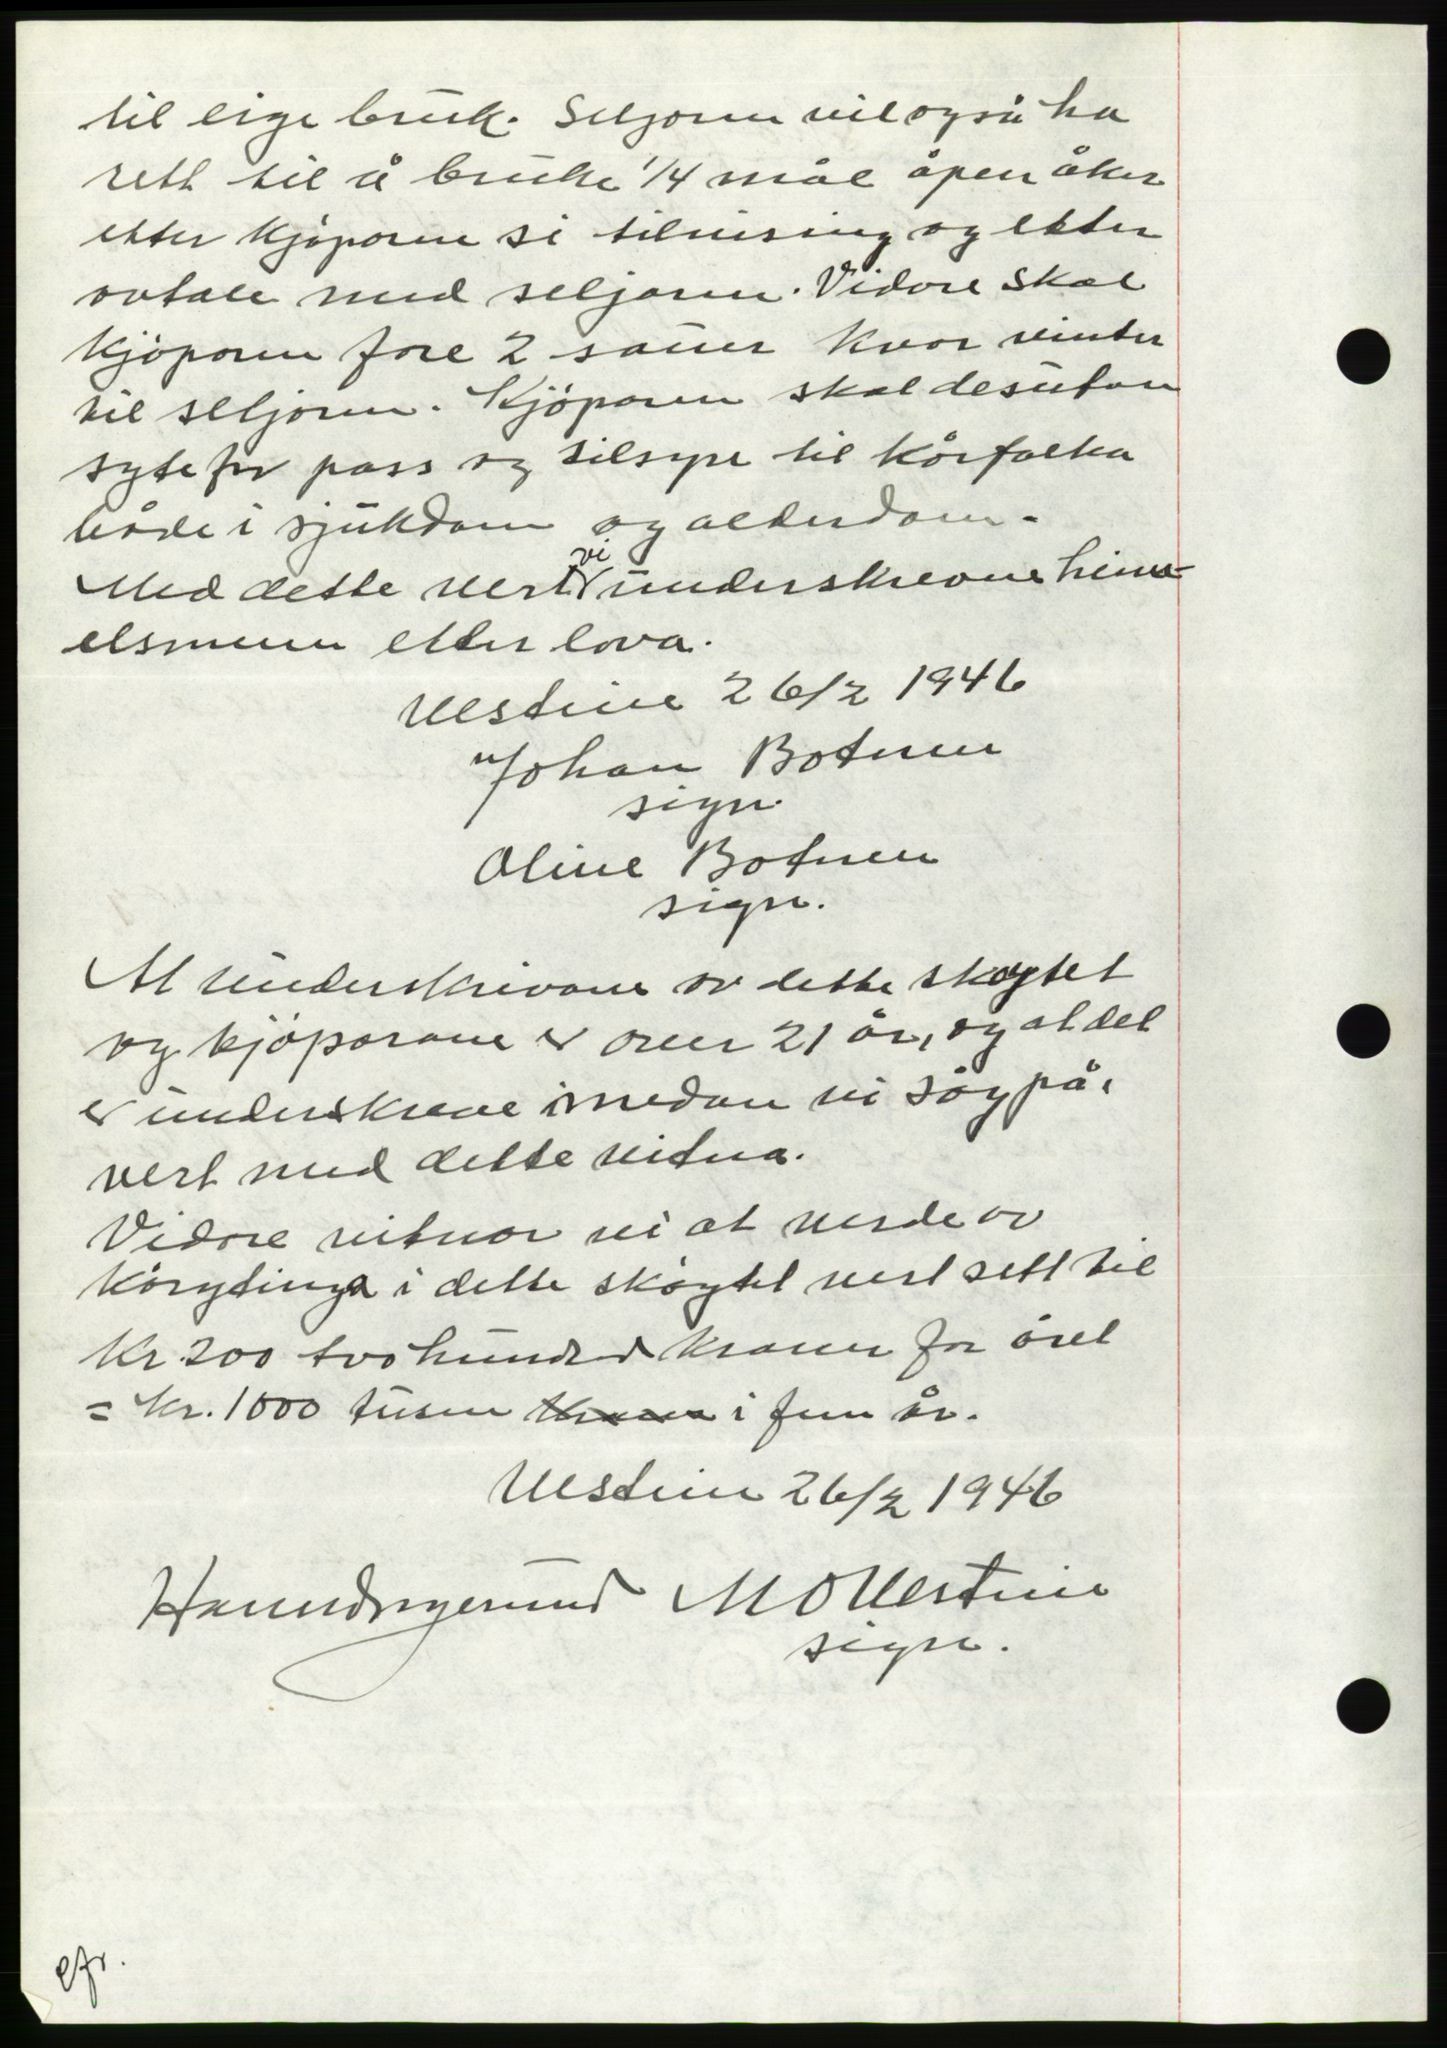 til eige bruk. Seljaren vil også ha
rett til å bruke 1/4 mål åpen åker
etter kjøparen si tilvising og etter
avtale med seljaren. Vidare skal
kjøparen fore 2 sauer kvar vinter
til seljaren. Kjøparen skal desutan
syte for pass og tilsyn til kårfolka
både i sjukdom og alderdom.
Med dette vert vi underskrevne heim-
elsmenn etter lova.
Vestrin 26/2 1946
Johan Botnen
sign.
Oline Botnen
sign.
At underskrivarane av dette skøytet
og kjøparane er over 21 år, og at det
er underskreve imedan vi såg på,
vert med dette vitna.
Vidare vitnar vi at verde av
kårytinga i dette skøytet vert sett til
Kr 200 tvo hundred kroner for året
= Kr. 1000 tusen kroner i fem år.
26/2 1946
M O
sign.
efr.